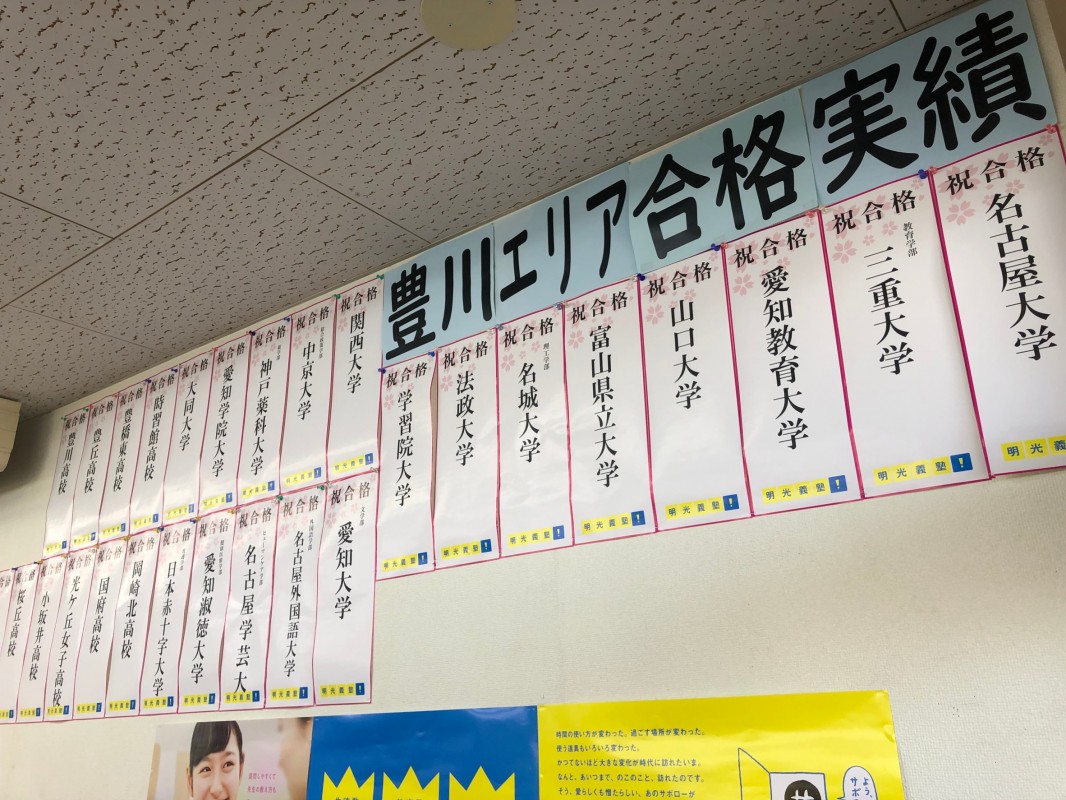 豊川エリア合格実績
祝合格
名古屋大学
祝合格
教育学部
三重大学
明光義塾!
祝合格
愛知教育大学
明光義塾!
祝合格
山口大学
明光義塾!
祝合格
富山県立大学
明光義塾!
祝合格
理工学部
名城大学
明光義塾!
祝合格
法政大学
明光義塾!
祝合格
学習院大学
明光義塾!
祝合格
関西大学
明光義塾!
祝合格
中京大学
明光義塾!
祝合格
神戸薬科大学
明光義塾!
祝合格
愛知学院大学
明光義塾!
祝合格
大同大学
明光義塾!
祝合格
時習館高校
明光義塾!
祝合格
豊橋東高校
明光義塾!
祝合格
豊丘高校
明光義塾!
祝合格
豊川高校
明光義塾!
祝合格
文学部
愛知大学
明光義塾!
祝合格
外国語学部
名古屋外国語大学
明光義塾!
祝合格
名古屋学芸大
明光義塾!
祝合格
愛知淑徳大学
明光義塾!
祝合格
日本赤十字大学
明光義塾!
祝合格
岡崎北高校
明光義塾!
祝合格
国府高校
明光義塾!
祝合格
光ケ丘女子高校
明光義塾!
小坂井高校
桜丘高校
明光義塾
時間の使い方が変わった。過ごす場所が変わった。
使う道具もいろいろ変わった。
かつてないほど大きな変化が時代に訪れたいま。
なんと、あいつまで、のこのこと、訪れたのです。
そう、愛らしくも憎たらしい、あのサボローが
よう、
サボ
サ